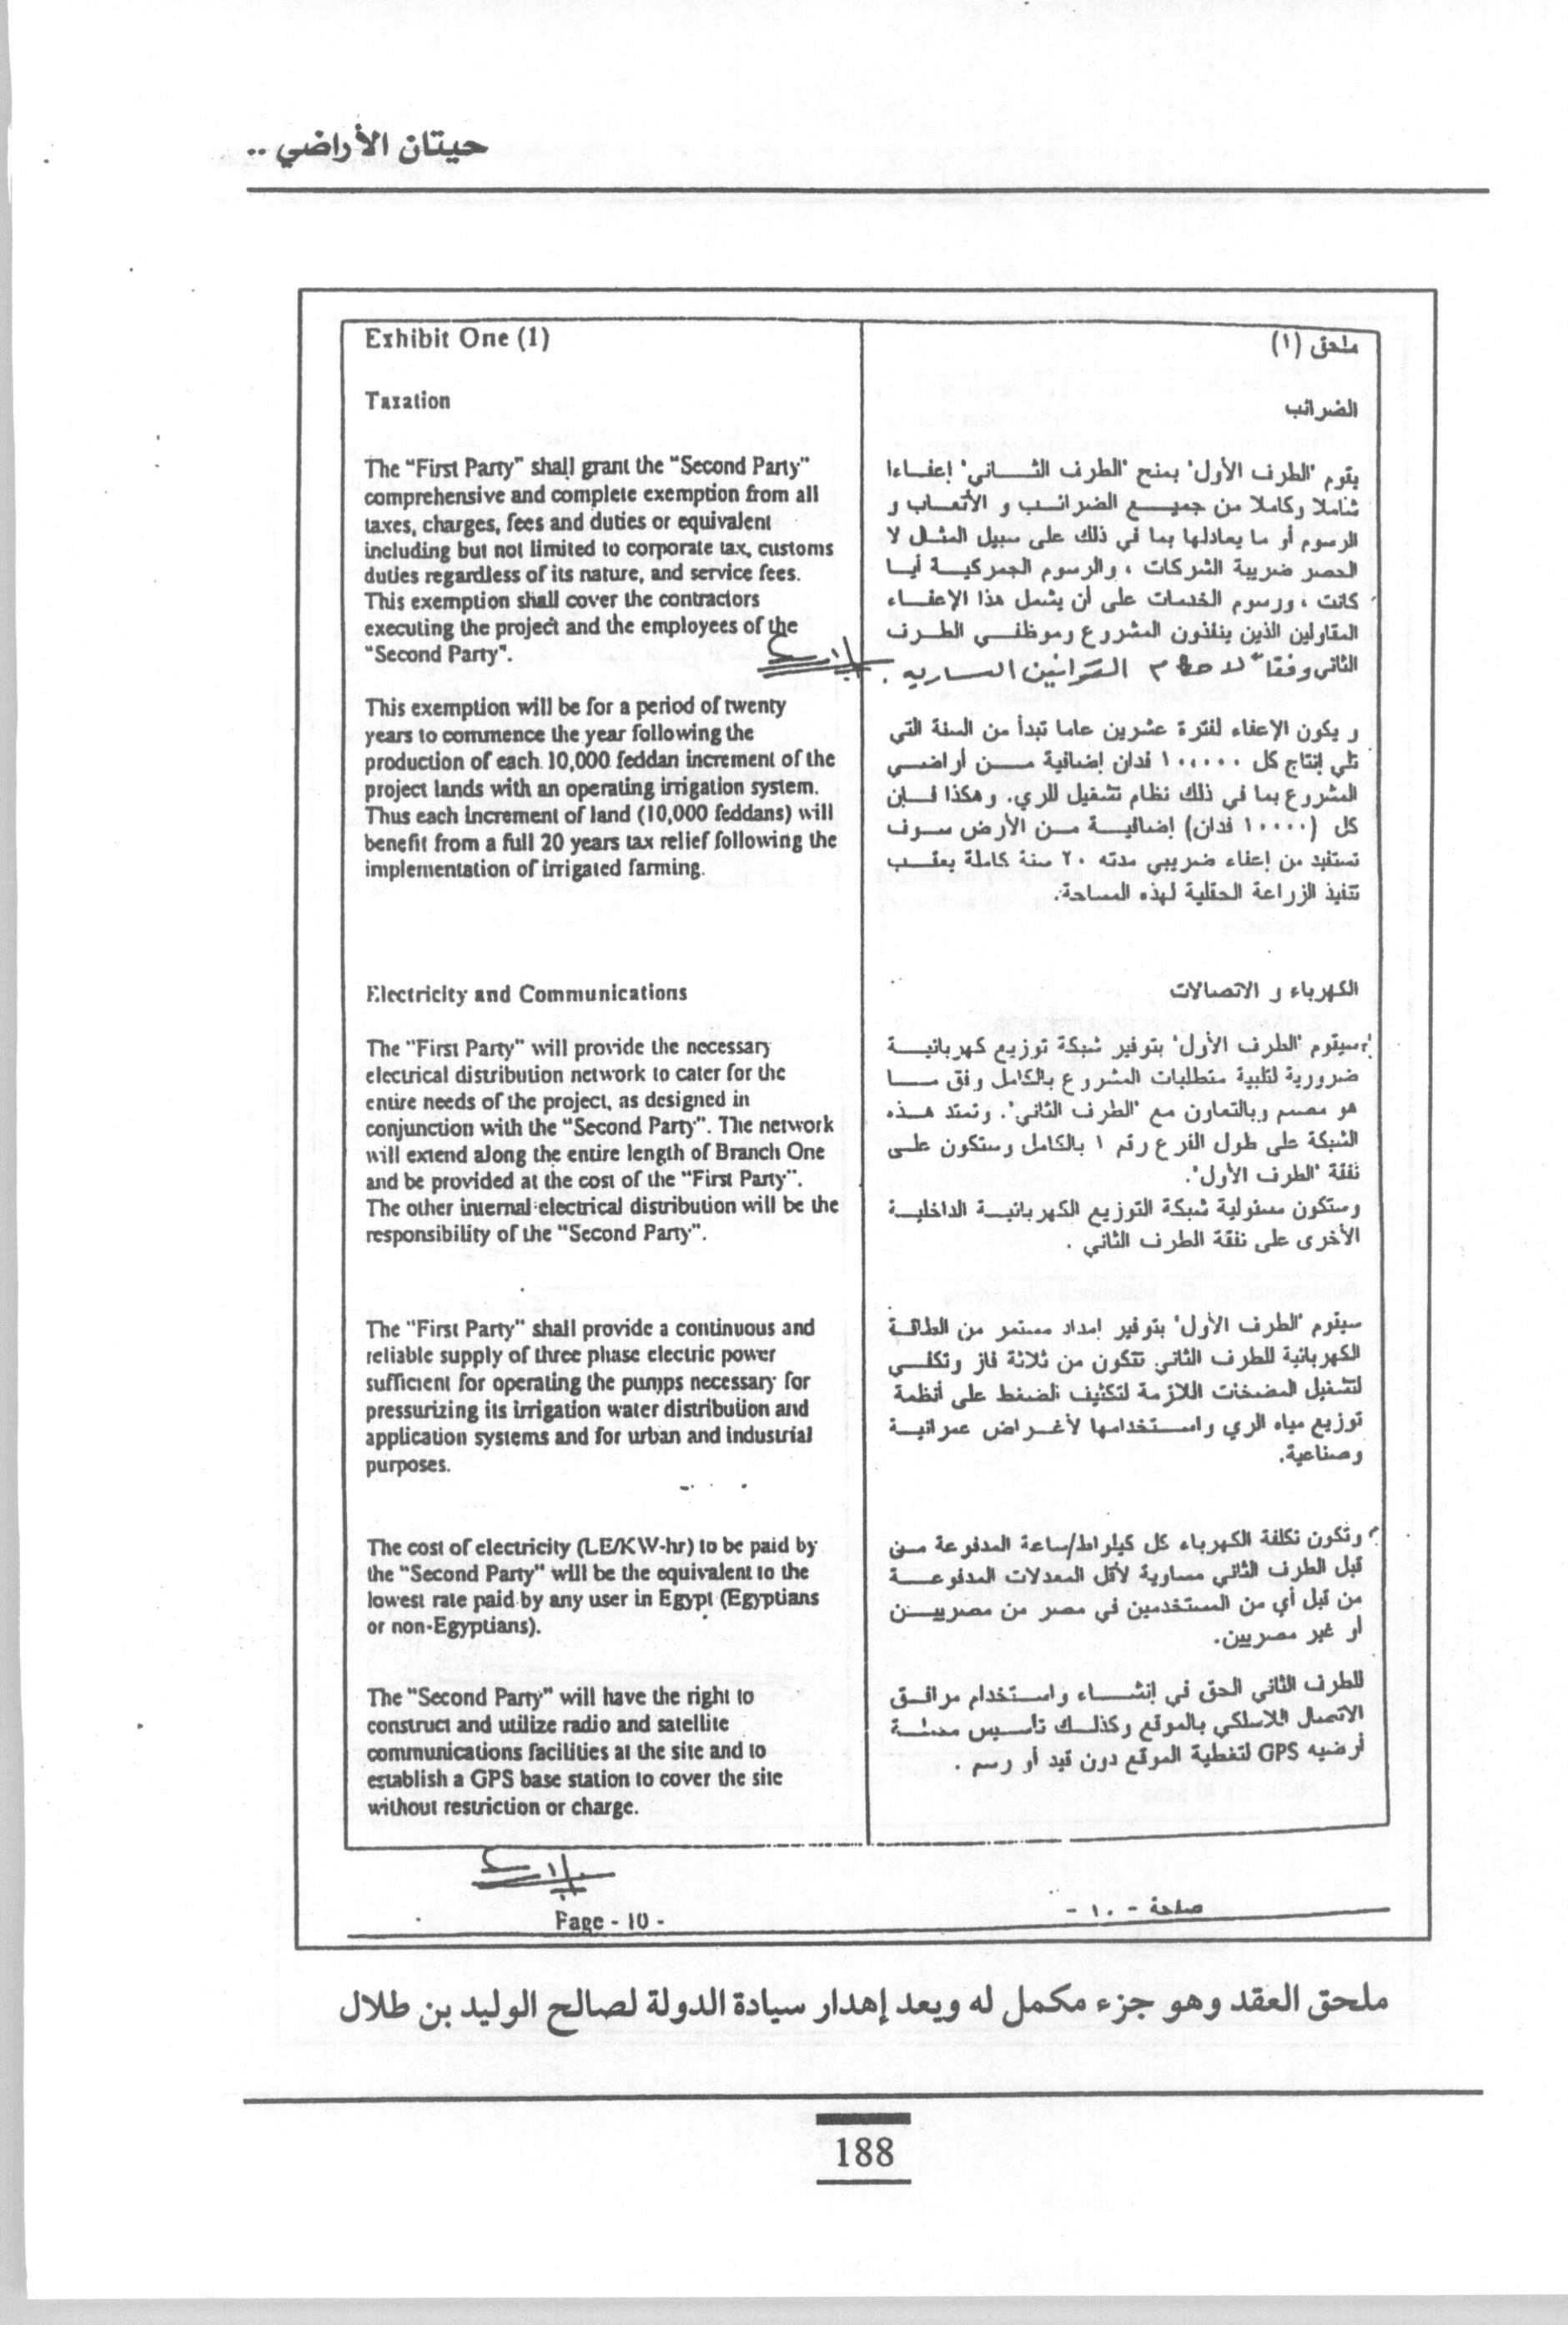 حيتان الأراضي ..
Exhibit One (1)
Taxation
The "First Party" shall grant the "Second Party"
comprehensive and complete exemption from all
taxes, charges, fees and duties or equivalent
including but not limited to corporate tax, customs
duties regardless of its nature, and service fees.
This exemption shall cover the contractors
executing the project and the employees of the
"Second Party".
This exemption will be for a period of twenty
years to commence the year following the
production of each 10,000 feddan increment of the
project lands with an operating irrigation system.
Thus each increment of land (10,000 feddans) will
benefit from a full 20 years tax relief following the
implementation of irrigated farming.
Electricity and Communications
The "First Party" will provide the necessary
electrical distribution network to cater for the
entire needs of the project, as designed in
conjunction with the "Second Party". The network
will extend along the entire length of Branch One
and be provided at the cost of the "First Party".
The other internal electrical distribution will be the
responsibility of the "Second Party".
The "First Party" shall provide a continuous and
reliable supply of three phase electric power
sufficient for operating the pumps necessary for
pressurizing its irrigation water distribution and
application systems and for urban and industrial
purposes.
The cost of electricity (LE/KW-hr) to be paid by
the "Second Party" will be the equivalent to the
lowest rate paid by any user in Egypt (Egyptians
or non-Egyptians).
The "Second Party" will have the right to
construct and utilize radio and satellite
communications facilities at the site and to
establish a GPS base station to cover the site
without restriction or charge.
Page - 10 -
ملحق (١)
الضرائب
يقوم "الطرف الأول" بمنح "الطرف الثاني" إعفاءا
شاملا وكاملا من جميع الضرائب و الأتعاب و
الرسوم أو ما يعادلها بما في ذلك على سبيل المثال لا
الحصر ضريبة الشركات ، والرسوم الجمركية أيا
كانت ، ورسوم الخدمات على أن يشمل هذا الإعفاء
المقاولين الذين ينفذون المشروع وموظفي الطرف
الثاني وفقاً لاحكام القوانين الساريه .
و يكون الإعفاء لفترة عشرين عاما تبدأ من السنة التي
تلي إنتاج كل ١٠،٠٠٠ فدان إضافية من أراضي
المشروع بما في ذلك نظام تشغيل للري. وهكذا فإن
كل (١٠٠٠٠ فدان) إضافية من الأرض سوف
تستفيد من إعفاء ضريبي مدته ٢٠ سنة كاملة يعقب
تنفيذ الزراعة الحقلية لهذه المساحة.
الكهرباء و الاتصالات
سيقوم "الطرف الأول" بتوفير شبكة توزيع كهربائية
ضرورية لتلبية متطلبات المشروع بالكامل وفق ما
هو مصمم وبالتعاون مع "الطرف الثاني". وتمتد هذه
الشبكة على طول الفرع رقم ١ بالكامل وستكون على
نفقة "الطرف الأول".
وستكون مسئولية شبكة التوزيع الكهربائية الداخلية
الأخرى على نفقة الطرف الثاني .
سيقوم "الطرف الأول" بتوفير إمداد مستمر من الطاقة
الكهربائية للطرف الثاني تتكون من ثلاثة فاز وتكفي
لتشغيل المضخات اللازمة لتكثيف الضغط على أنظمة
توزيع مياه الري واستخدامها لأغراض عمرانية
وصناعية.
وتكون تكلفة الكهرباء كل كيلواط/ساعة المدفوعة من
قبل الطرف الثاني مساوية لأقل المعدلات المدفوعة
من قبل أي من المستخدمين في مصر من مصريين
أو غير مصريين.
للطرف الثاني الحق في إنشاء واستخدام مرافق
الاتصال اللاسلكي بالموقع وكذلك تأسيس محطة
أرضيه GPS لتغطية الموقع دون قيد أو رسم .
صفحة - ١٠ -
ملحق العقد وهو جزء مكمل له ويعد إهدار سيادة الدولة لصالح الوليد بن طلال
188